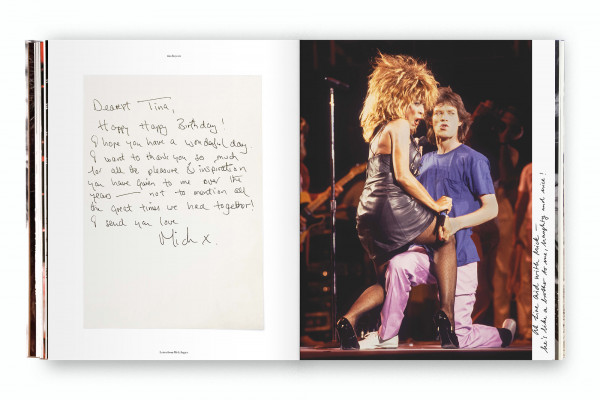 Dearest Tina,
Happy Happy Birthday!
I hope you have a wonderful day
I want to thank you so much
for all the pleasure & inspiration
you have given to me over the
years — not to mention all
the great times we had together!
I send you love
Mick x.
Letter from Mick Jagger
At Live Aid with Mick —
he's like a brother to me, naughty and nice!